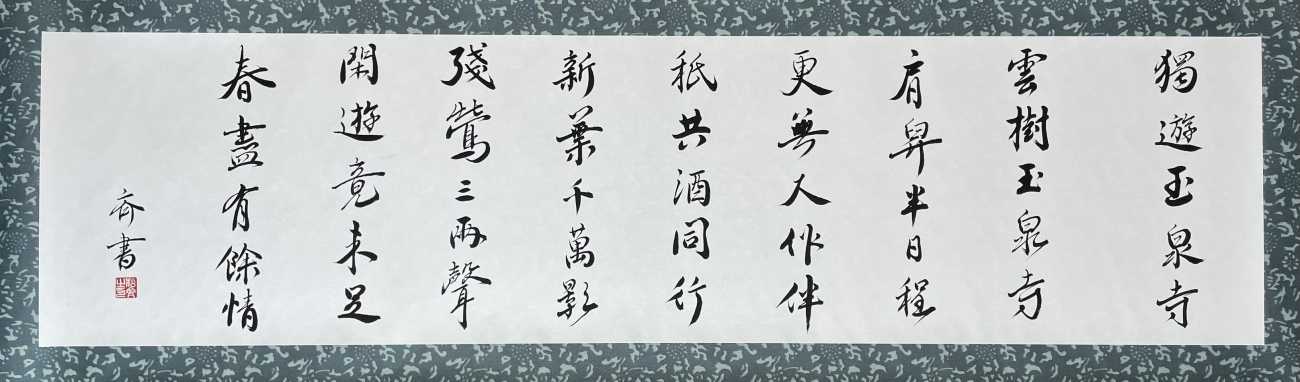 獨遊玉泉寺
雲樹玉泉寺
肩舁半日程
更無人作伴
秖共酒同行
新葉千萬影
殘鶯三兩聲
閑遊竟未足
春盡有餘情
齊書